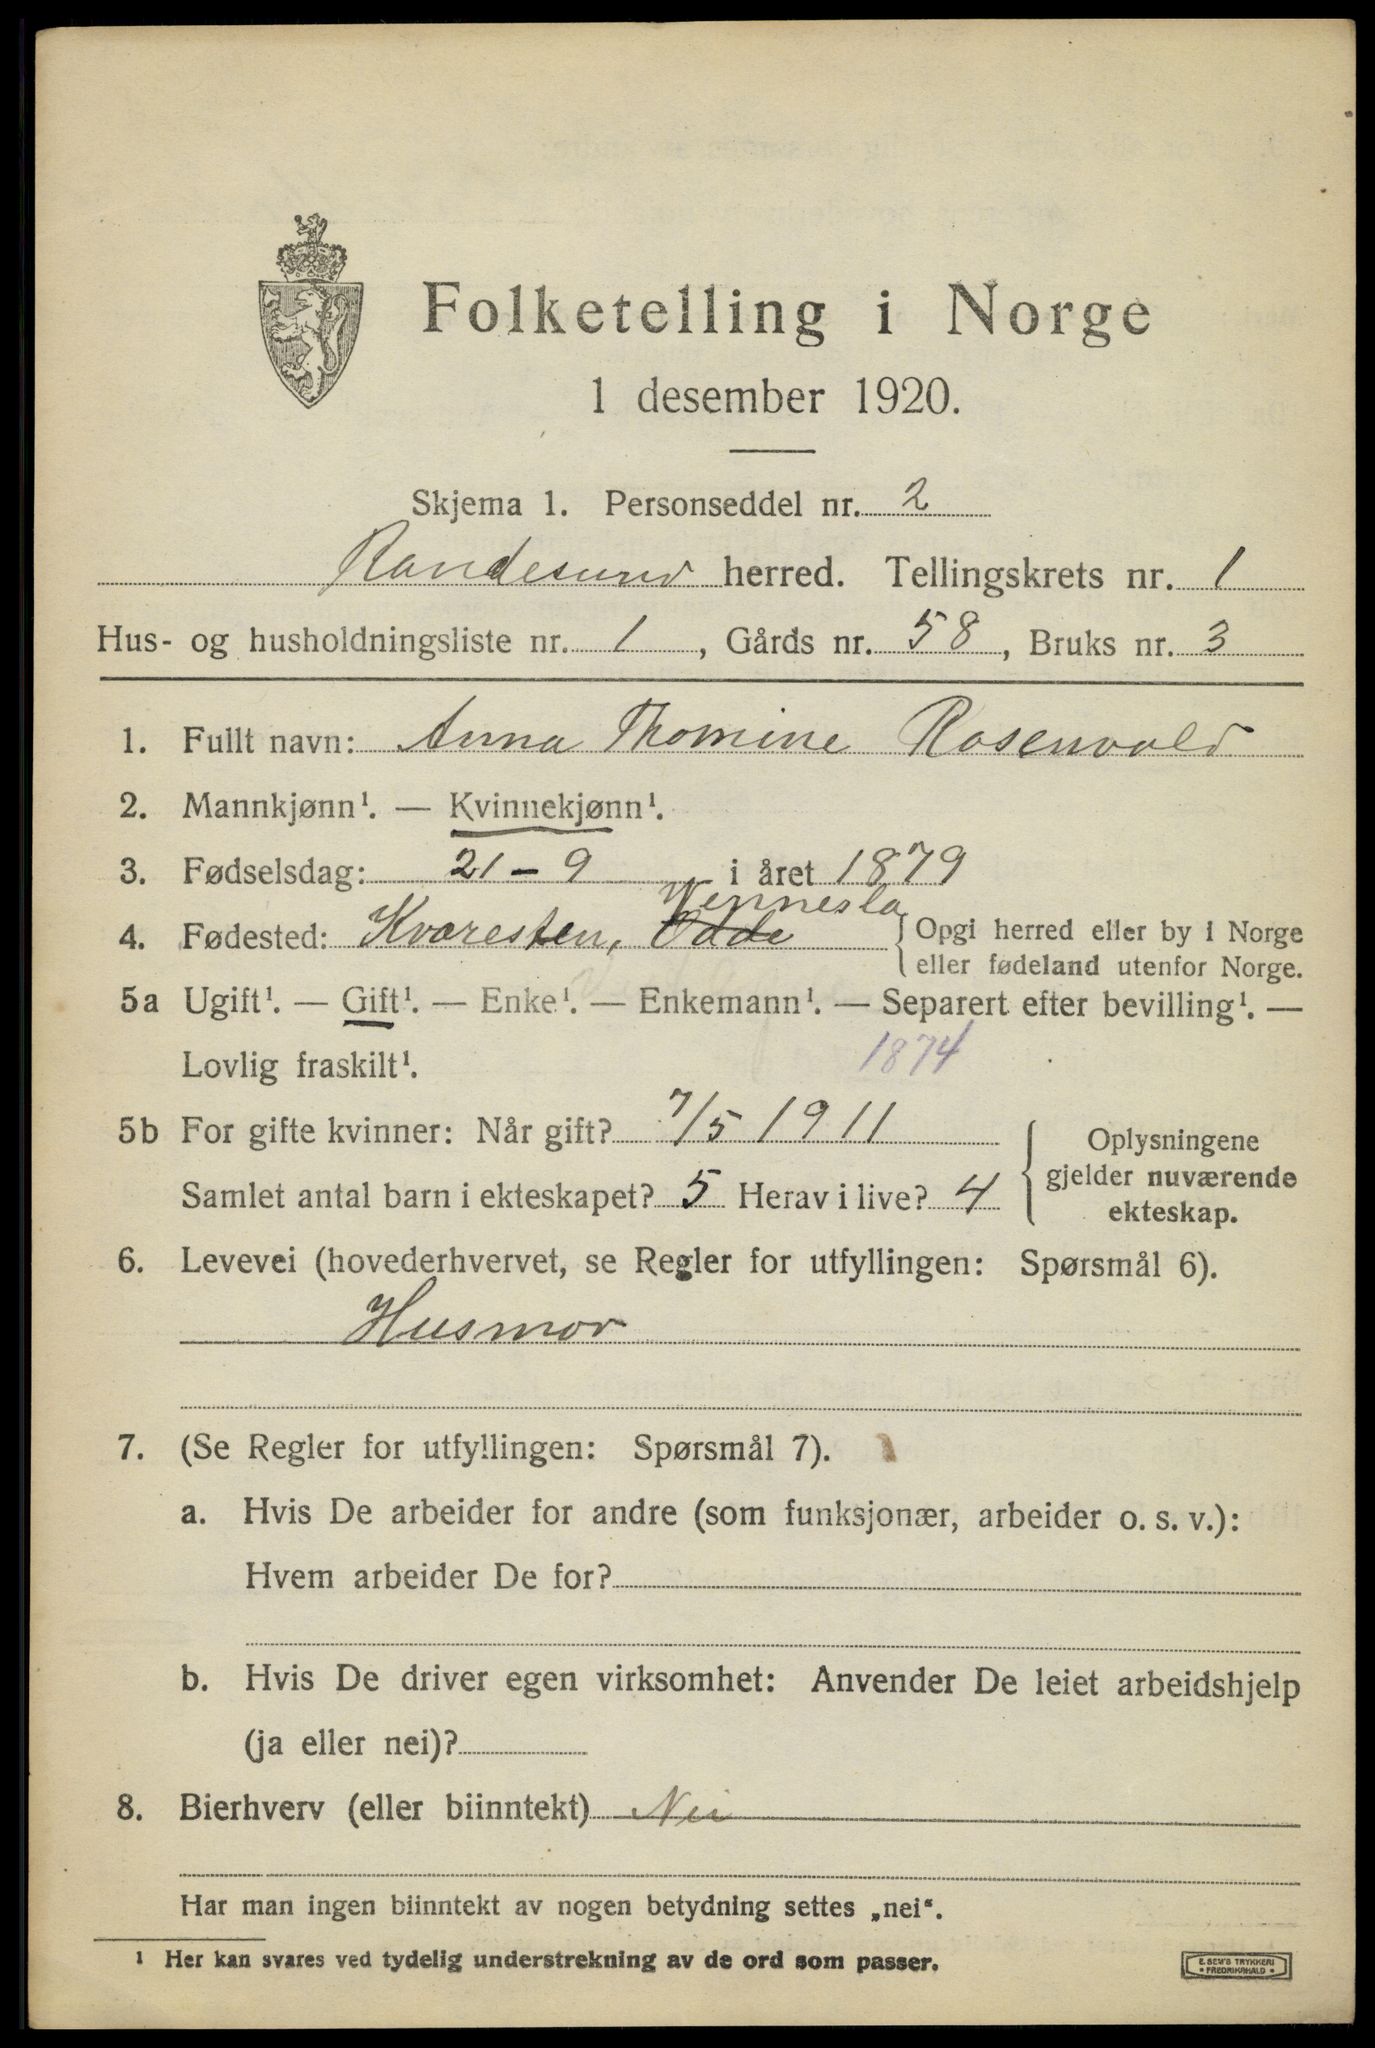 Folketelling i Norge
1 desember 1920.
Skjema 1. Personseddel nr. 2
Randesund herred. Tellingskrets nr. 1
Hus- og husholdningsliste nr. 1, Gårds nr. 58, Bruks nr. 3
1. Fullt navn: Anna Thomine Rosenvold
2. Mannkjønn¹. — Kvinnekjønn¹.
3. Fødselsdag: 21-9 i året 1879
Vennesla
4. Fødested: Kvaresten, Odde { Opgi herred eller by i Norge
eller fødeland utenfor Norge.
5a Ugift¹. — Gift¹. — Enke¹. — Enkemann¹. — Separert efter bevilling¹. —
Lovlig fraskilt¹. 1874
5b For gifte kvinner: Når gift? 7/5 1911
Samlet antal barn i ekteskapet? 5 Herav i live? 4
Oplysningene
gjelder nuværende
ekteskap.
6. Levevei (hovederhvervet, se Regler for utfyllingen: Spørsmål 6).
Husmor
7. (Se Regler for utfyllingen: Spørsmål 7).
a. Hvis De arbeider for andre (som funksjonær, arbeider o. s. v.):
Hvem arbeider De for?
b. Hvis De driver egen virksomhet: Anvender De leiet arbeidshjelp
(ja eller nei)?
8. Bierhverv (eller biinntekt) Nei
Har man ingen biinntekt av nogen betydning settes „nei“.
¹ Her kan svares ved tydelig understrekning av de ord som passer.
E. SEM'S TRYKKERI
• FREDRIKSHALD •